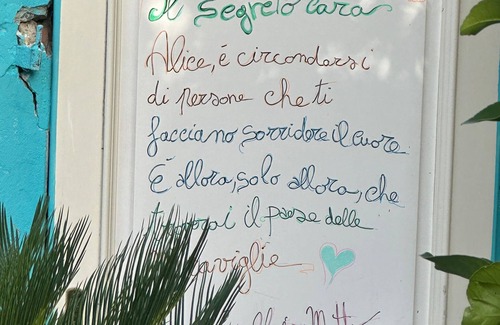 Il segreto cara
Alice, è circondarsi
di persone che ti
facciano sorridere il cuore.
È allora, solo allora, che
troverai il paese delle